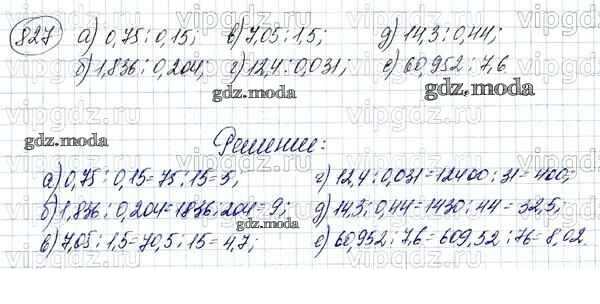 827 а) 0,75 : 0,15; в) 7,05 : 1,5; д) 14,3 : 0,44;
б) 1,836 : 0,204; г) 12,4 : 0,031; е) 60,952 : 7,6
gdz.moda
gdz.moda
gdz.moda
Решение:
а) 0,75 : 0,15 = 75 : 15 = 5; г) 12,4 : 0,031 = 12400 : 31 = 400;
б) 1,836 : 0,204 = 1836 : 204 = 9; д) 14,3 : 0,44 = 1430 : 44 = 32,5;
gdz.moda
в) 7,05 : 1,5 = 70,5 : 15 = 4,7; е) 60,952 : 7,6 = 609,52 : 76 = 8,02.